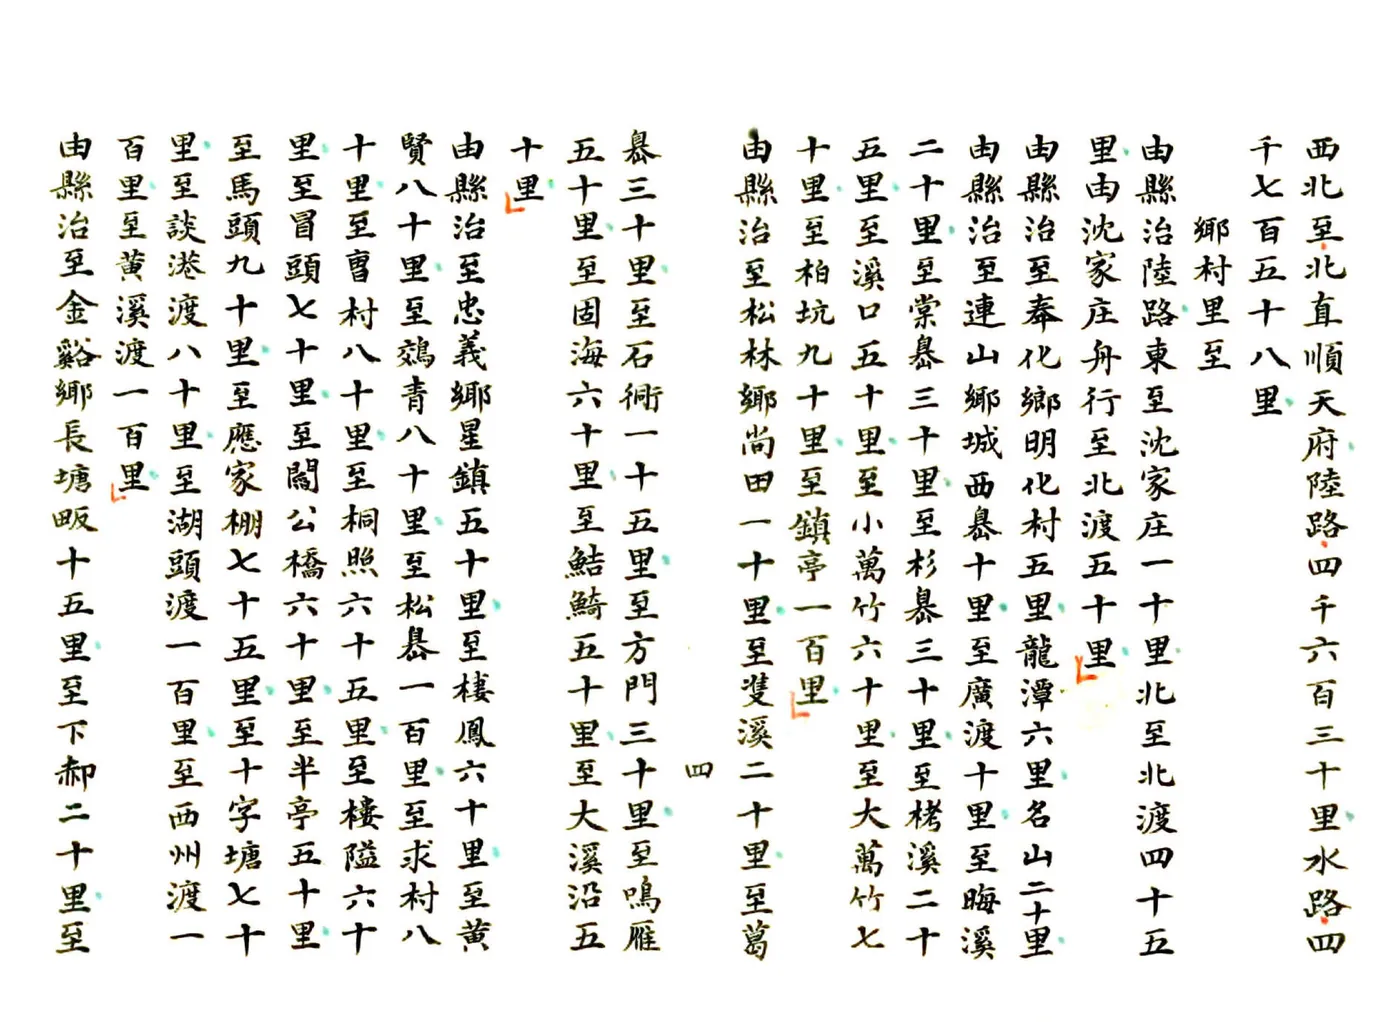 西北至北直順天府陸路四千六百三十里水路四
千七百五十八里
鄉村里至
由縣治陸路東至沈家庄一十里北至北渡四十五
里由沈家庄舟行至北渡五十里
由縣治至奉化鄉明化村五里龍潭六里名山二十里
由縣治至連山鄉城西嶴十里至廣渡十里至晦溪
二十里至棠嶴三十里至杉嶴三十里至栲溪二十
五里至溪口五十里至小萬竹六十里至大萬竹七
十里至柏坑九十里至鎮亭一百里
由縣治至松林鄉尚田一十里至雙溪二十里至葛
四
嶴三十里至石衕一十五里至方門三十里至鳴雁
五十里至固海六十里至鮚鯖五十里至大溪沿五
十里
由縣治至忠義鄉星鎮五十里至棲鳳六十里至黄
賢八十里至鵁青八十里至松嶴一百里至求村八
十里至曹村八十里至桐照六十五里至樓隘六十
里至冒頭七十里至閻公橋六十里至半亭五十里
至馬頭九十里至應家棚七十五里至十字塘七十
里至談港渡八十里至湖頭渡一百里至西州渡一
百里至黄溪渡一百里
由縣治至金谿鄉長塘畈十五里至下郝二十里至